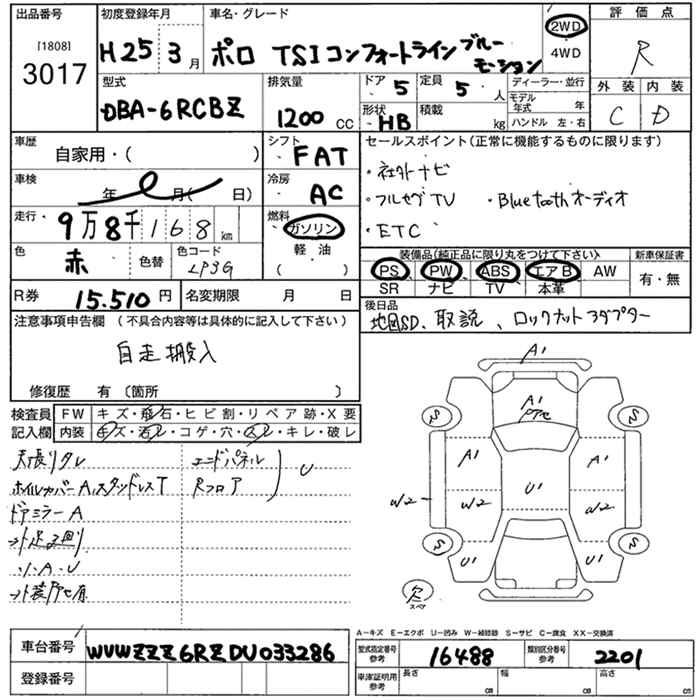 出品番号
[1808]
3017
初度登録年月
H25 3月
車名・グレード
ポロ TSIコンフォートライン ブルー
モーション
2WD
4WD
評価点
R
外装 内装
C D
型式
DBA-6RCBZ
排気量
1200 CC
ドア 5
定員 5 人
形状 HB
積載 kg
ディーラー・並行
モデル年式 年
ハンドル 左・右
車歴
自家用・( )
シフト
FAT
車検
年 月( 日)
冷房
AC
走行・
9万8千168 km
燃料
ガソリン
軽・油
( )
色
赤
色替
色コード
LP3G
R券 15.510円
名変期限 月 日
セールスポイント(正常に機能するものに限ります)
・社外ナビ
・フルセグTV ・Bluetoothオーディオ
・ETC
装備品(純正品に限り丸をつけて下さい)
PS PW ABS エアB AW
SR ナビ TV 本革
新車保証書
有・無
後日品
地図SD、取説、ロックナットアダプター
注意事項申告欄 (不具合内容等は具体的に記入して下さい)
自走搬入
修復歴 有 (箇所 )
検査員
記入欄
FW キズ・飛石・ヒビ割・リペア跡・X要
内装 キズ・汚レ・コゲ・穴・スレ・キレ・破レ
天張りタレ
ホイルカバーA、スタッドレスT
ドアミラーA
→ト足廻リ
〃・A・U
→ト装アセ有
エンドパネル
Rフロア
U
A1
A1
アセ
S
S
A1
A1
W2
W2
W2
U1
S
S
U1
U1
欠
スペア
A―キズ E―エクボ U―凹み W―補修跡 S―サビ C―腐食 XX―交換済
車台番号 WVWZZZ6RZDU033286
登録番号
型式指定番号
参考
16488
類別区分番号
参考
2201
車庫証明用
参考
長さ cm
幅 cm
高さ cm